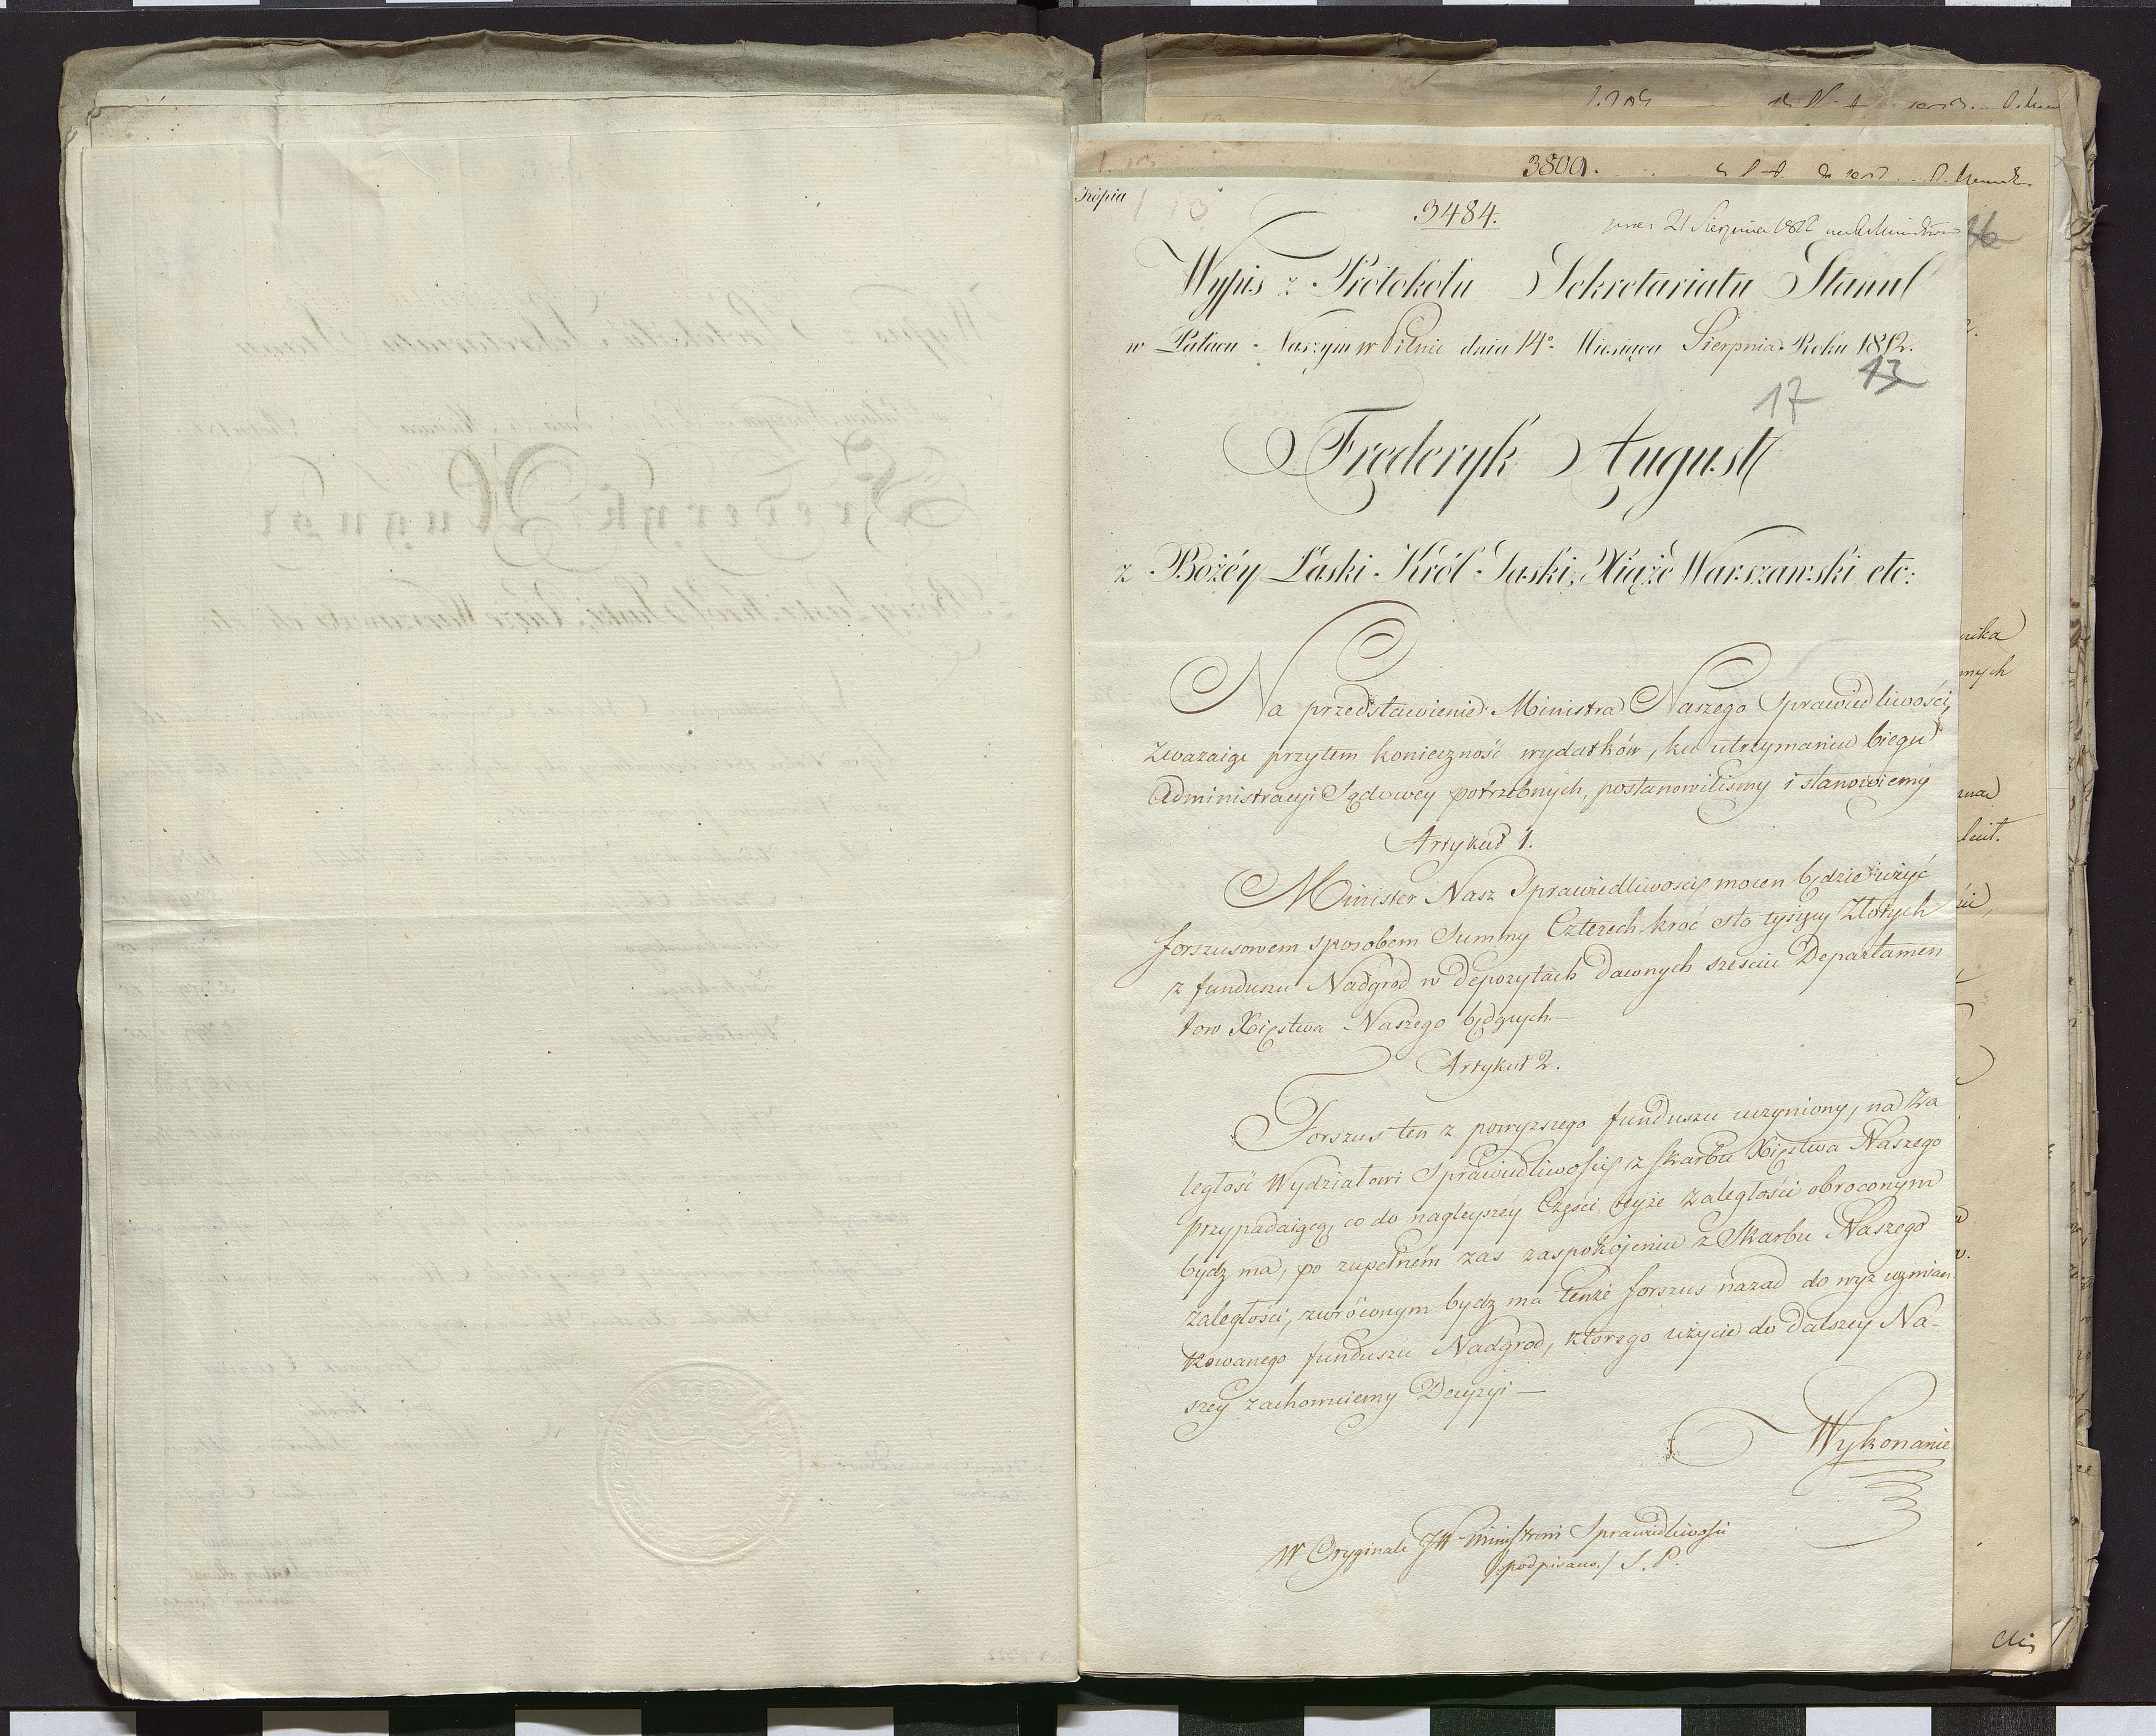 3800.
Kopia
3484.
21 Sierpnia 1812
16
Wypis z Protokołu Sekretariatu Stanu
w Pałacu Naszym w Pilnic dnia 14° Miesiąca Sierpnia Roku 1812.
13
17
Frederyk August
z Bożéy Łaski Król Saski, Xiąże Warszawski etc:
Na przedstawienie Ministra Naszego Sprawiedliwości,
zwazaiąc przytem konieczność wydatków, ku utrzymaniu biegu
Administracyi Sądowey potrzebnych, postanowilismy i stanowiemy
Artykuł 1.
Minister Nasz Sprawiedliwosci mocen będzie użyć
forszusowem sposobem Summy Czterech kroć sto tysięcy Złotych
z funduszu Nadgrod w Depozytach dawnych sześciu Departamen
tow Xięstwa Naszego będących —
Artykuł 2.
Forszus ten z powyzszego funduszu uczyniony, na Za
ległość Wydziałowi Sprawiedliwości z Skarbu Xięstwa Naszego
przypadaiącą, co do nagleyszéy Części teyże Zaległości obroconym
bydz ma, po zupełném zas zaspokojeniu z Skarbu Naszego
Zaległości, zwróconym bydz ma tenże forszus nazad do wyz wzmian
kowanego funduszu Nadgrod, ktorego użycie do dalszey Na-
szey zachowuiemy Decyzyi —
Wykonanie
W Oryginale JW Ministrowi Sprawiedliwości
/podpisano/ S. P.